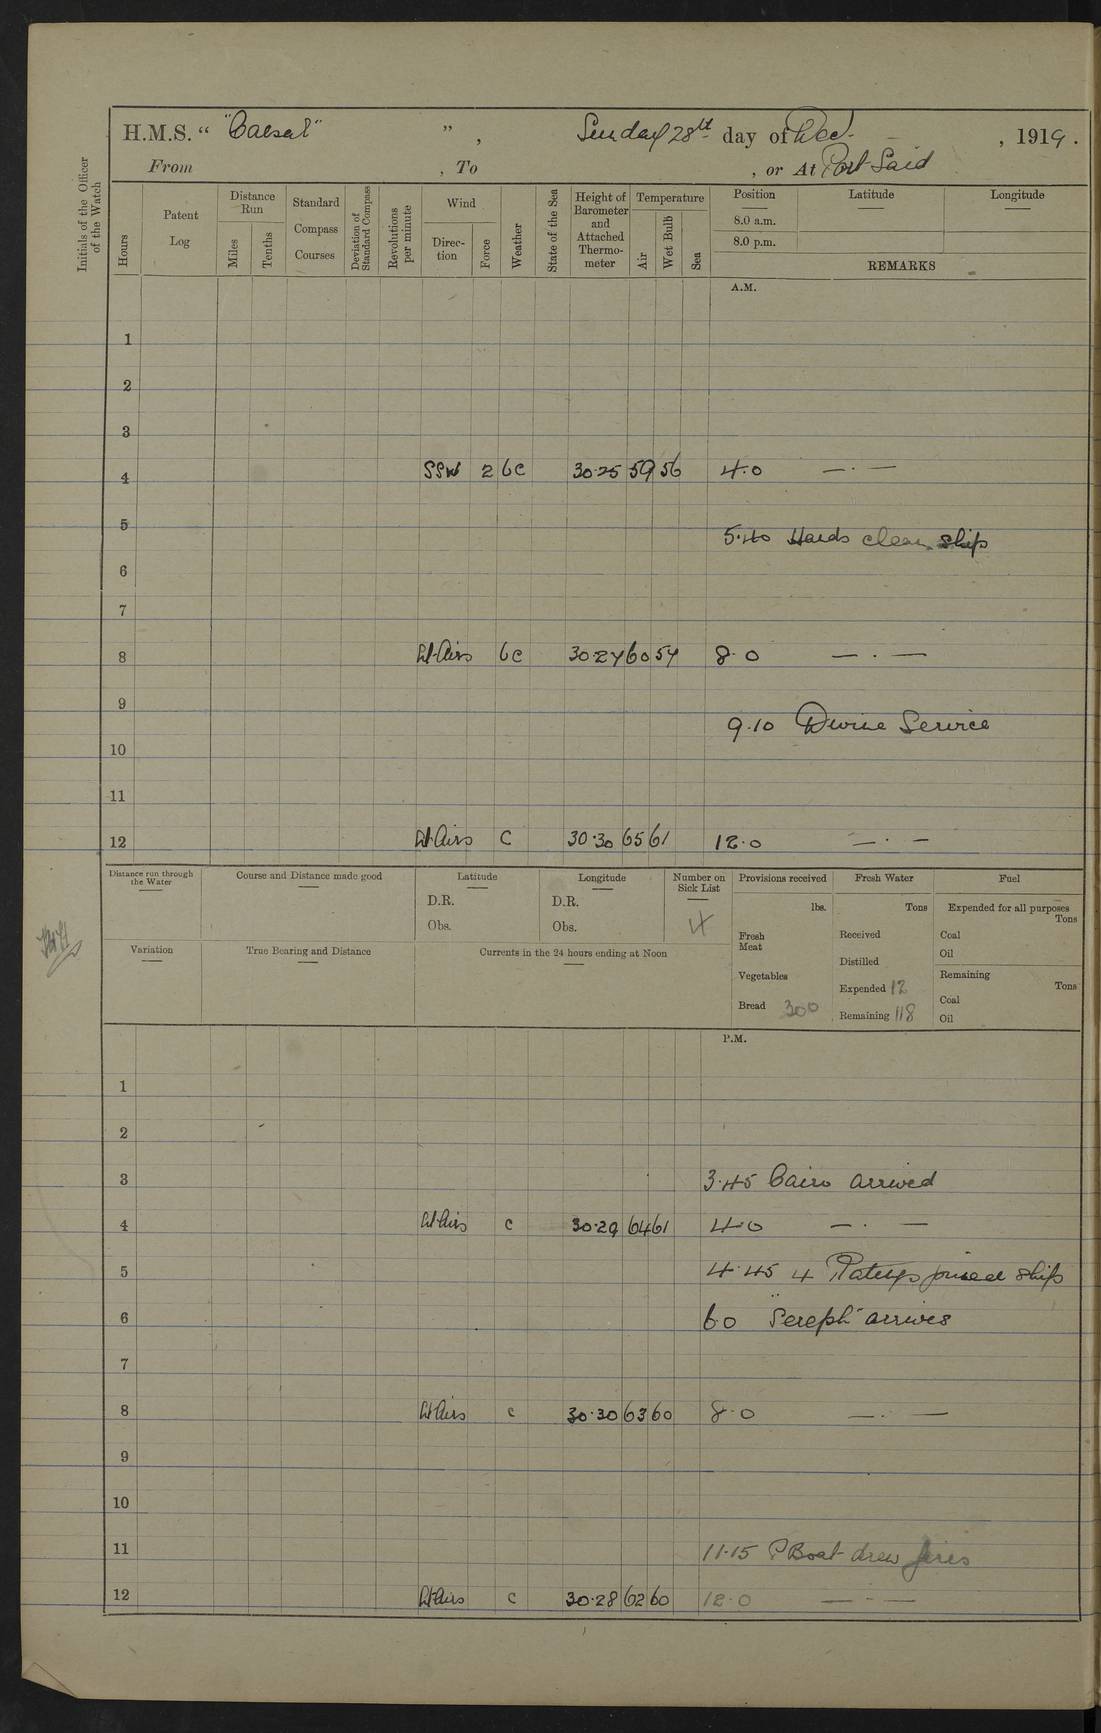 H.M.S. “ "Caesar" ” , Sunday 28th day of Dec. , 1919 .
From , To , or At Port Said
Initials of the Officer of the Watch
Hours
Patent Log
Distance Run
Miles
Tenths
Standard Compass Courses
Deviation of Standard Compass
Revolutions per minute
Wind
Direction
Force
Weather
State of the Sea
Height of Barometer and Attached Thermometer
Temperature
Air
Wet Bulb
Sea
Position Latitude Longitude
8.0 a.m.
8.0 p.m.
REMARKS
A.M.
1
2
3
4 SSW 2 bc 30.25 59 56 4.0 — . —
5
5.40 Hands clean ship
6
7
8 Lt Airs bc 30.27 60 57 8.0 — . —
9
9.10 Divine Service
10
11
12 Lt Airs c 30.30 65 61 12.0 — . —
Distance run through the Water
Course and Distance made good
Latitude
D.R.
Obs.
Longitude
D.R.
Obs.
Number on Sick List
4
Provisions received
lbs.
Fresh Meat
Vegetables
Bread 300
Fresh Water
Tons
Received
Distilled
Expended 12
Remaining 118
Fuel
Expended for all purposes
Tons
Coal
Oil
Remaining
Tons
Coal
Oil
Variation
True Bearing and Distance
Currents in the 24 hours ending at Noon
P.M.
1
2
3 3.45 Cairo arrived
4 Lt Airs c 30.29 64 61 4.0 — . —
5 4.45 4 Ratings joined ship
6 6.0 "Sereph" arrives
7
8 Lt Airs c 30.30 63 60 8.0 — . —
9
10
11 11.15 P Boat drew fires
12 Lt Airs c 30.28 62 60 12.0 — . —